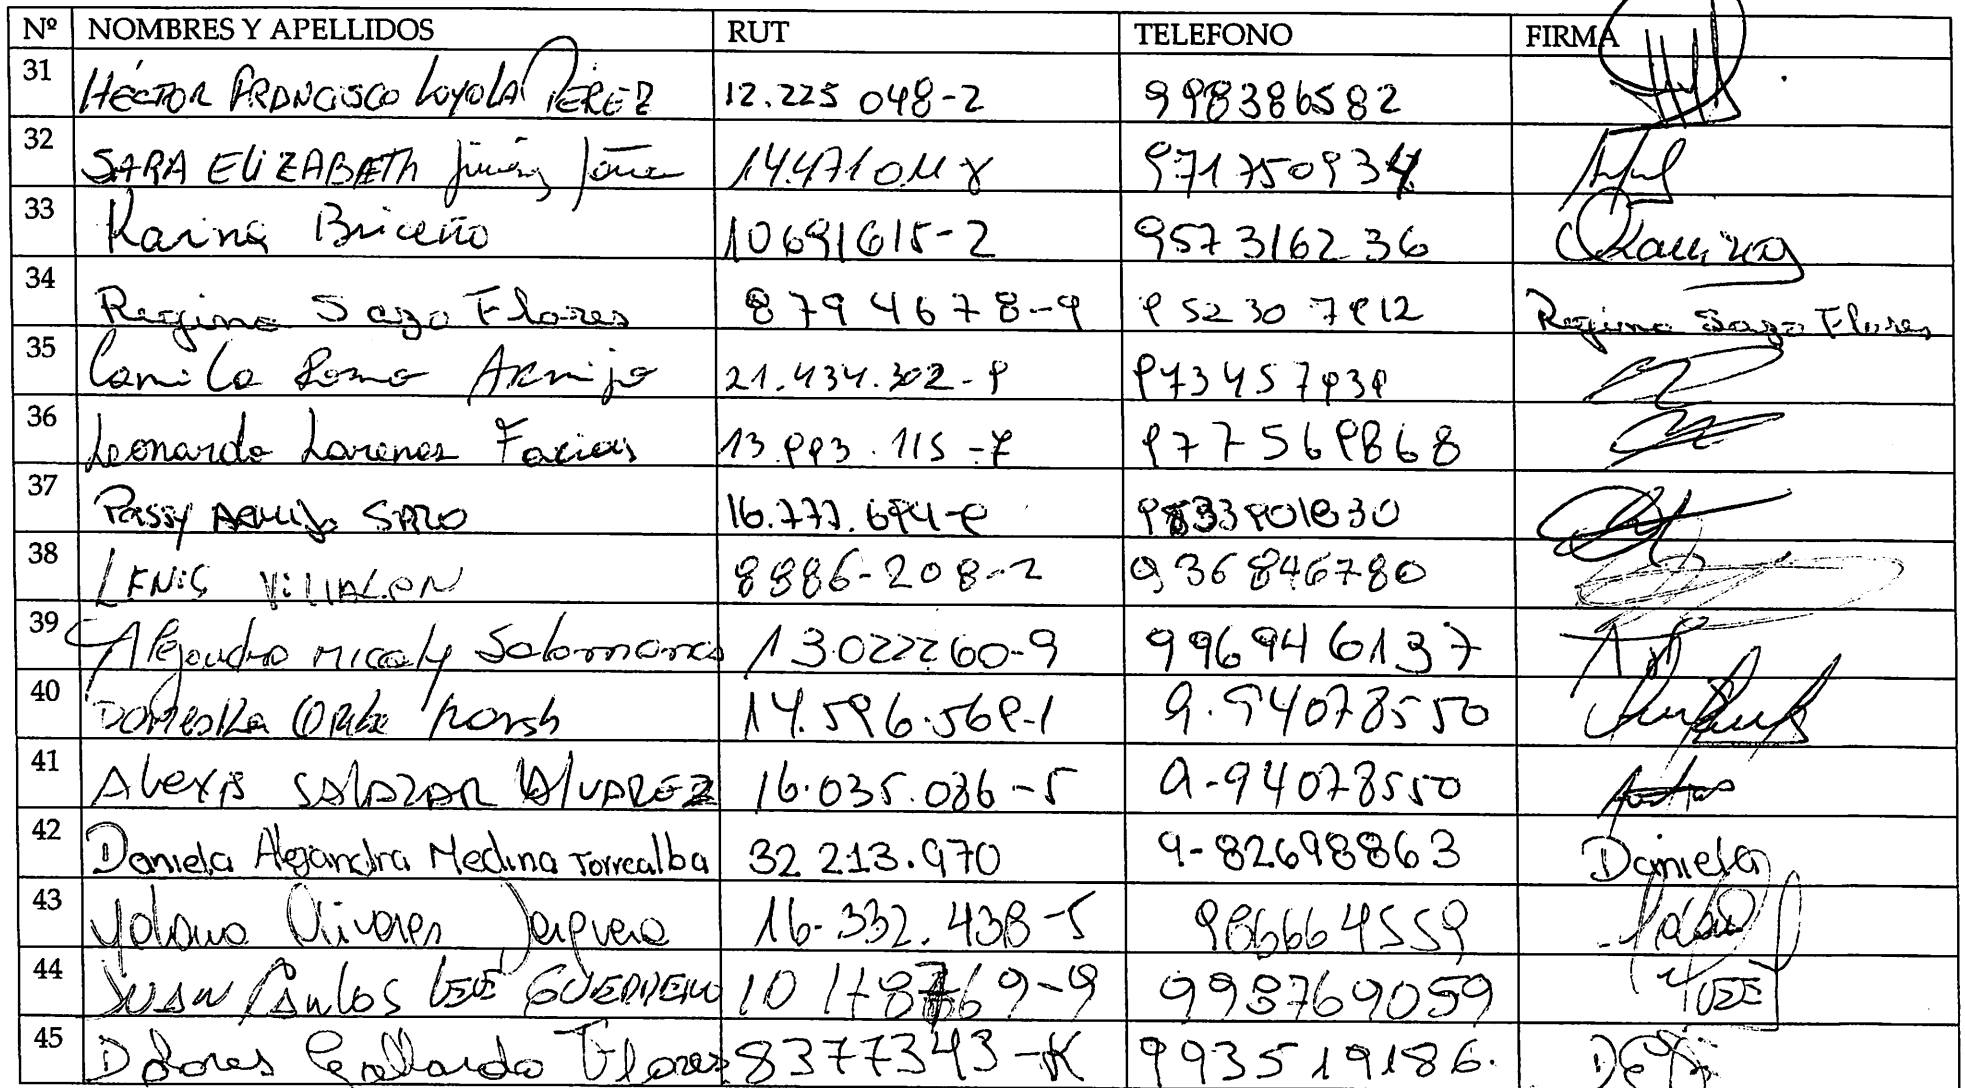 Nº NOMBRES Y APELLIDOS RUT TELEFONO FIRMA
31 HÉCTOR FRANCISCO LOYOLA PÉREZ 12.225 048-2 998386582
32 SARA ELIZABETH 14.471 971750934
33 Karina Briceño 10691615-2 957316236
34 Regina Sazo Flores 8794678-9 952307912 Regina Sazo Flores
35 Camila Romo Armijo 21.434.302-9 973457939
36 Leonardo Lorenas Facias 13.993.115-7 977569868
37 Passy Armijo SAZO 16.777.694- 
38 LENIS VILLALON 8886-208-2 936846780
39 Alejandro Micaly Salomonas 13.022260-9 996946137
40 14.596.569-1 9.94078550
41 Alexis SALAZAR ALVAREZ 16.035.036-5 9-94078550
42 Daniela Alejandra Medina Torrealba 32 213.970 9-82698863 Daniela
43 Yohana Olivares 16-332.438-5 986664559
44 JUAN CARLOS GUERRERO 998769059
45 Dolores Gallardo Flores 8377343-K 993519186.